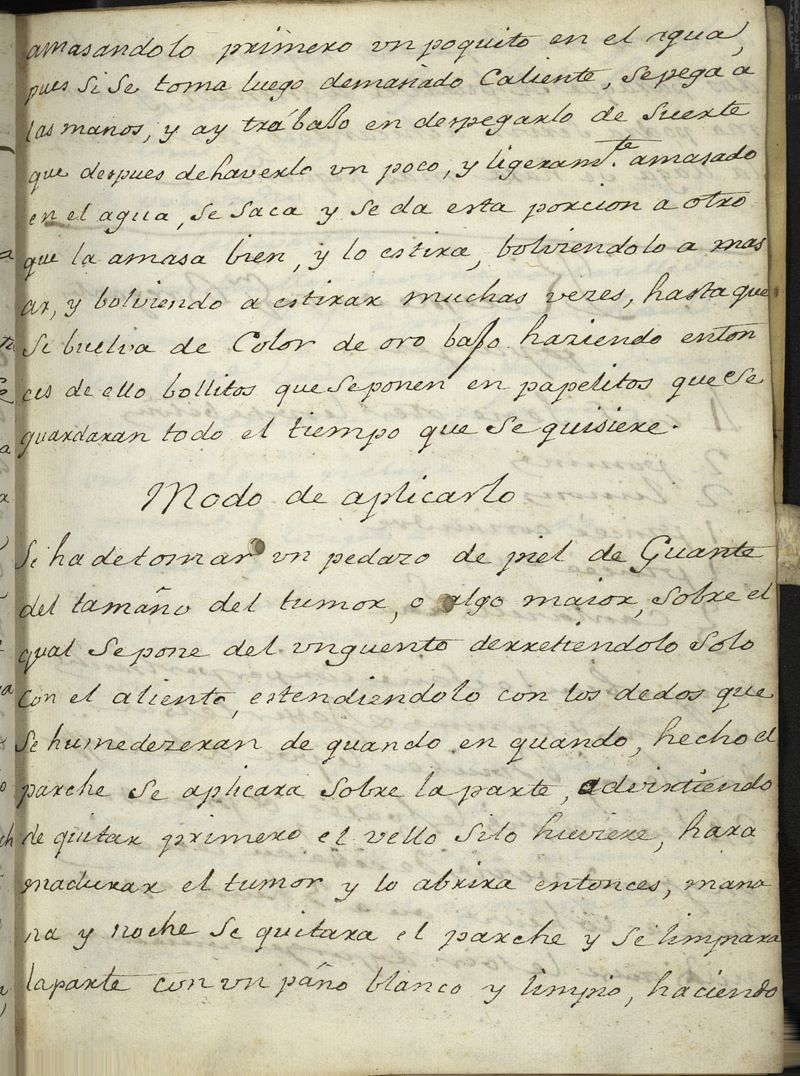 amasandolo primero vn poquito en el agua,
pues si se toma luego demasiado Caliente, sepega a
las manos, y ay trábaJo en despegarlo de suerte
que despues dehaverlo vn poco, y ligeram.te amasado
en el agua, se saca y se da esta porcion a otro
que la amasa bien, y lo estira, bolviendolo a mas
ar, y bolviendo a estirar muchas vezes, hasta que
se buelva de Color de oro baJo haziendo enton
ces de ello bollitos que seponen en papelitos que se
guardaran todo el tiempo que se quisiere.
Modo de aplicarlo
Se ha detomar vn pedazo de piel de Guante
del tamaño del tumor, o algo maior, sobre el
qual sepone del vnguento derretiendolo solo
con el aliento, estendiendolo con los dedos que
se humedezeran de quando en quando, hecho el
parche se aplicara sobre la parte, advirtiendo
de quitar primero el vello silo huviere, hara
madurar el tumor y lo abrira entonces, maña
na y noche se quitara el parche y se limpiara
laparte con vn paño blanco y limpio, haciendo